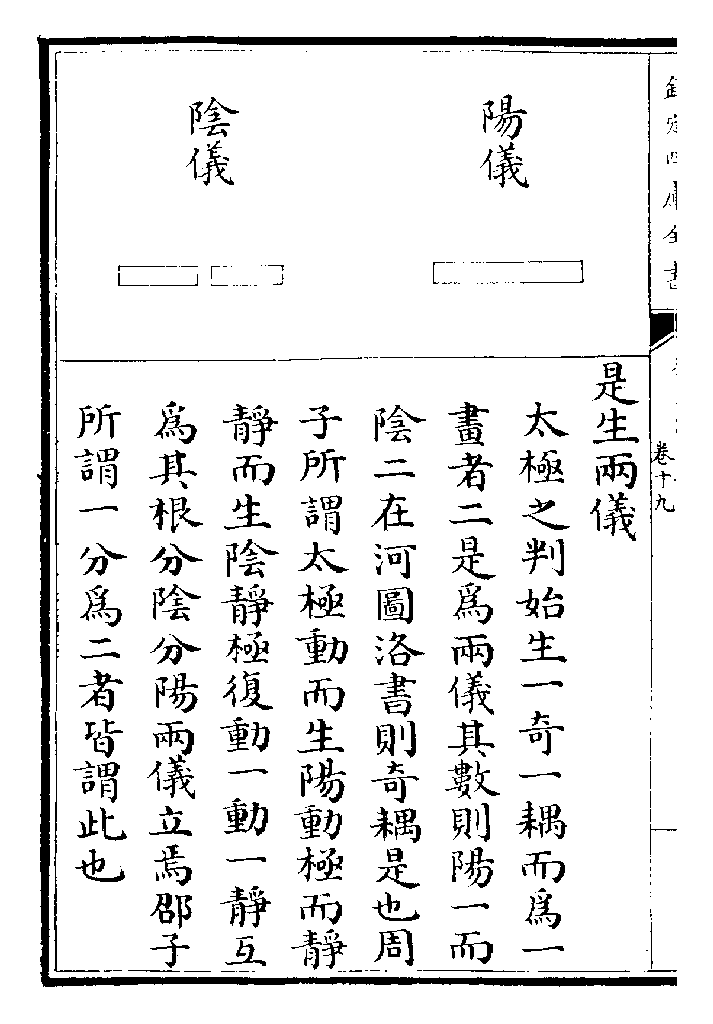 欽定四庫全書
卷十九
陽儀
陰儀
是生兩儀
太極之判始生一奇一耦而爲一
畫者二是爲兩儀其數則陽一而
陰二在河圖洛書則奇耦是也周
子所謂太極動而生陽動極而靜
靜而生陰靜極復動一動一靜互
爲其根分陰分陽兩儀立焉邵子
所謂一分爲二者皆謂此也